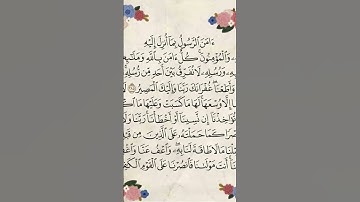 ءَامَنَ ٱلرَّسُولُ بِمَآ أُنزِلَ إِلَيْهِ
وَٱلْمُؤْمِنُونَ ۚ كُلٌّ ءَامَنَ بِٱللَّهِ
وَرُسُلِهِۦ لَا نُفَرِّقُ بَيْنَ أَحَدٍ مِّن رُّسُلِهِ
وَأَطَعْنَا ۖ غُفْرَانَكَ رَبَّنَا وَإِلَيْكَ ٱلْمَصِيرُ
إِلَّا وُسْعَهَا ۚ لَهَا مَا كَسَبَتْ وَعَلَيْهَا مَا
إِن نَّسِينَآ أَوْ أَخْطَأْنَا ۚ رَبَّنَا
كَمَا حَمَلْتَهُۥ عَلَى ٱلَّذِينَ مِن
مَا لَا طَاقَةَ لَنَا بِهِۦ ۖ وَٱعْفُ عَنَّا
أَنتَ مَوْلَىٰنَا فَٱنصُرْنَا عَلَى ٱلْقَوْمِ